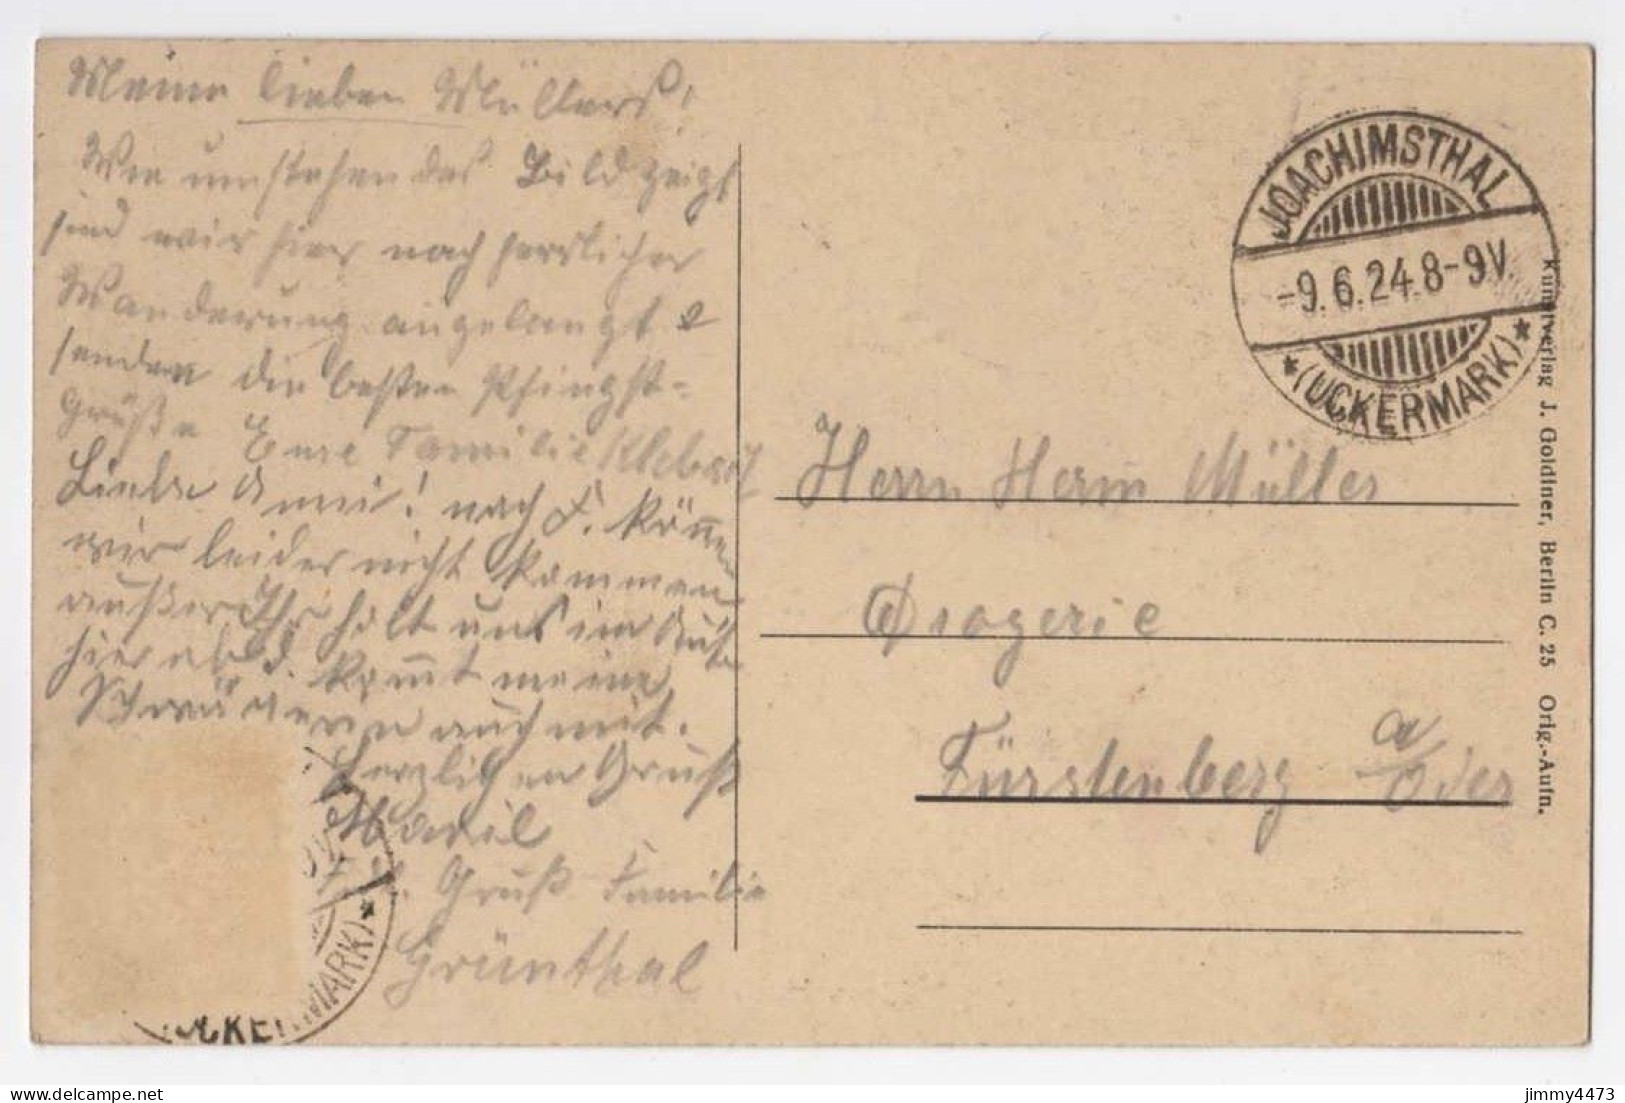 Meine lieben Müllers!
Wie umstehendes Bild zeigt
sind wir hier nach herrlicher
Wanderung angelangt &
senden die besten Pfingst-
Grüße Eure Familie
Liebe Anni! nach F. können
wir leider nicht kommen
außer Ihr holt uns im Auto
hier ab. kommt meine
Schwägerin auch mit.
Herzlichen Gruß
Gruß Familie
Grünthal
JOACHIMSTHAL
-9.6.24.8-9V.
*(UCKERMARK)*
Herrn Herm Müller
Drogerie
Fürstenberg a/Oder
Kunstverlag J. Goldiner, Berlin C. 25 Orig.-Aufn.
9V.
UCKERMARK)*
delcampe.net
jimmy4473